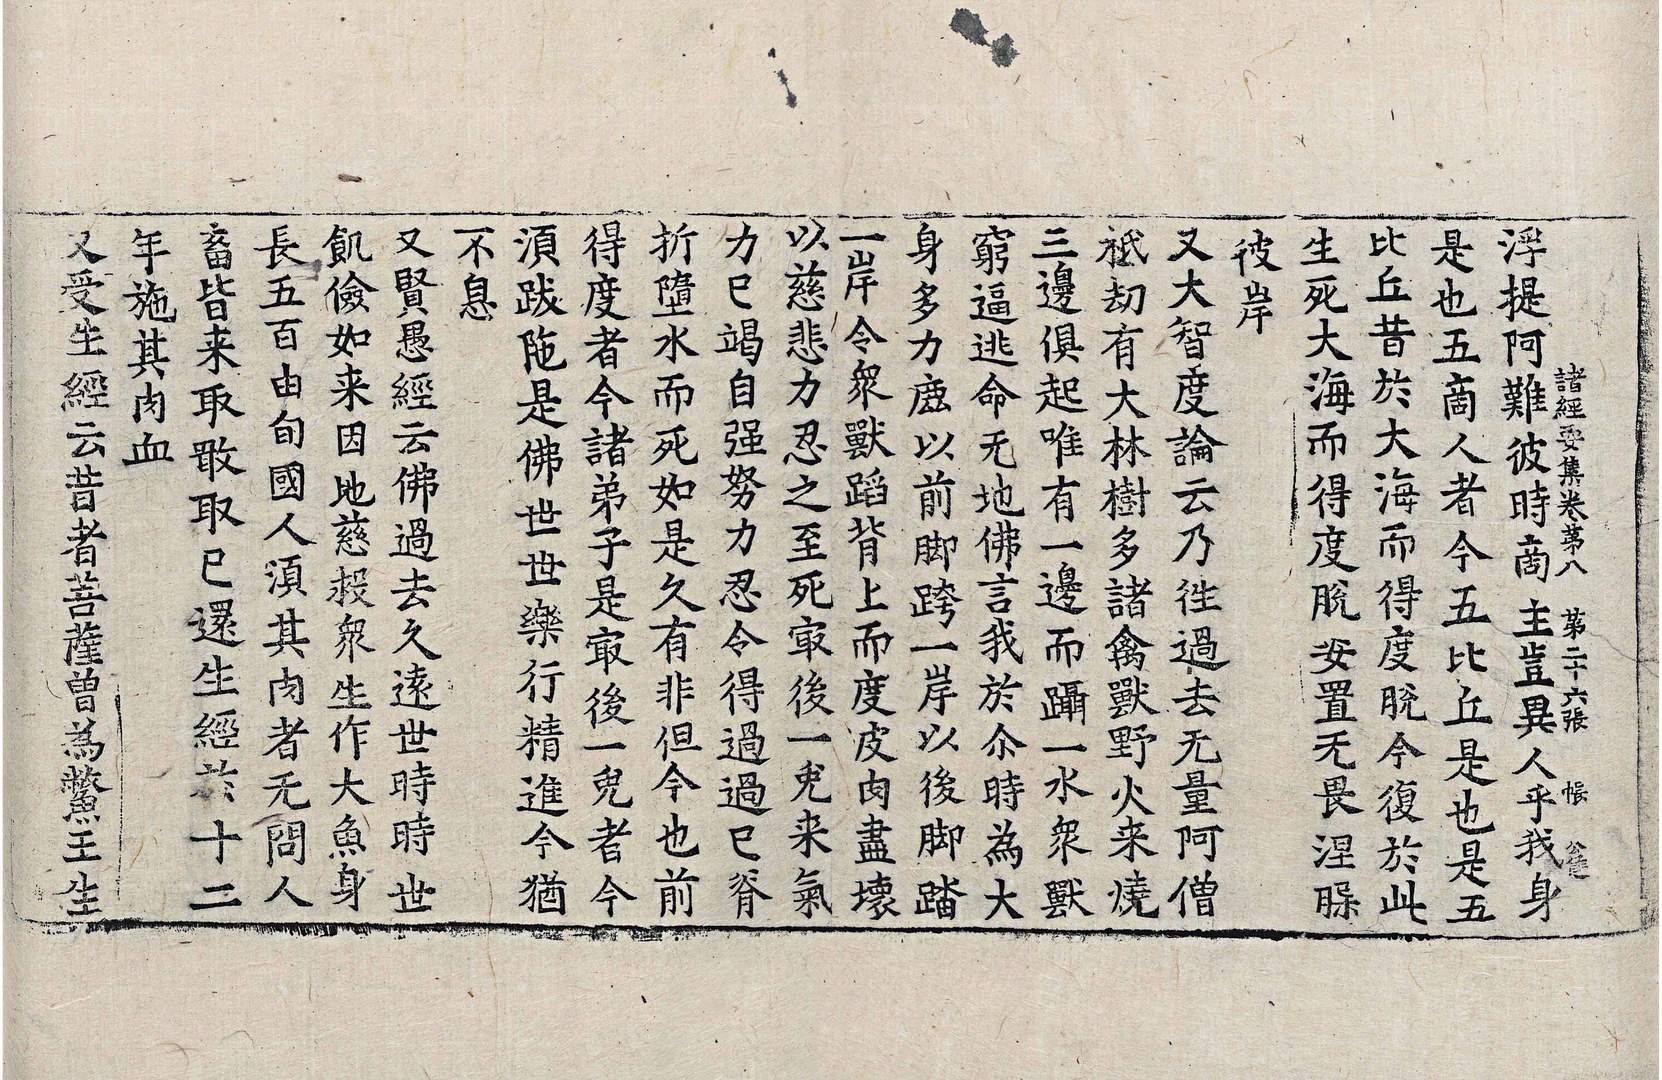 諸經要集卷第八 第二十六張 帳
浮提阿難彼時啇主豈異人乎我身
是也五啇人者今五比丘是也是五
比丘昔於大海而得度脫今復於此
生死大海而得度脫安置无畏涅槃
彼岸
又大智度論云乃徃過去无量阿僧
祇劫有大林樹多諸禽獸野火来燒
三邊俱起唯有一邊而躡一水衆獸
窮逼逃命无地佛言我於尒時為大
身多力鹿以前脚跨一岸以後脚踏
一岸令衆獸蹈背上而度皮肉盡壞
以慈悲力忍之至死㝡後一兔来氣
力已竭自强努力忍令得過過已脊
折墮水而死如是久有非但今也前
得度者今諸弟子是㝡後一兔者今
湏跋陁是佛世世樂行精進今猶
不息
又賢愚經云佛過去久遠世時時世
飢儉如来因地慈救衆生作大魚身
長五百由旬國人湏其肉者无問人
畜皆来取噉取已還生經於十二
年施其肉血
又受生經云昔者菩薩曽為鱉王生